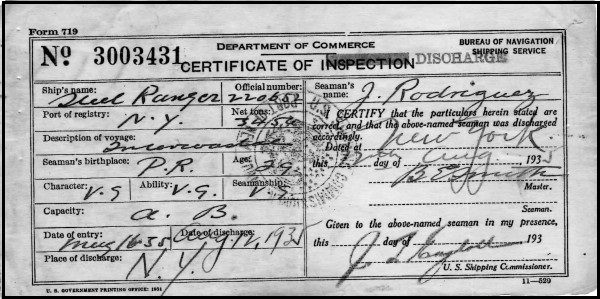 Form 719
No. 3003431
DEPARTMENT OF COMMERCE
BUREAU OF NAVIGATION
SHIPPING SERVICE
CERTIFICATE OF INSPECTION
DISCHARGE
Ship's name: Steel Ranger
Official number:
Port of registry: N.Y.
Net tons:
Description of voyage:
Seaman's birthplace: P.R.
Age: 29
Character: V.G
Ability: V.G.
Seamanship: V.G.
Capacity: A. B.
Date of entry:
Date of discharge: Aug 12, 1935
Place of discharge: N.Y.
U. S. GOVERNMENT PRINTING OFFICE: 1931
Seaman's name: J. Rodriguez
I CERTIFY that the particulars herein stated are
correct, and that the above-named seaman was discharged
accordingly.
Dated at New York
this day of Aug, 1935
B E Smith
Master.
Seaman.
Given to the above-named seaman in my presence,
this day of 193
U. S. Shipping Commissioner.
11—529